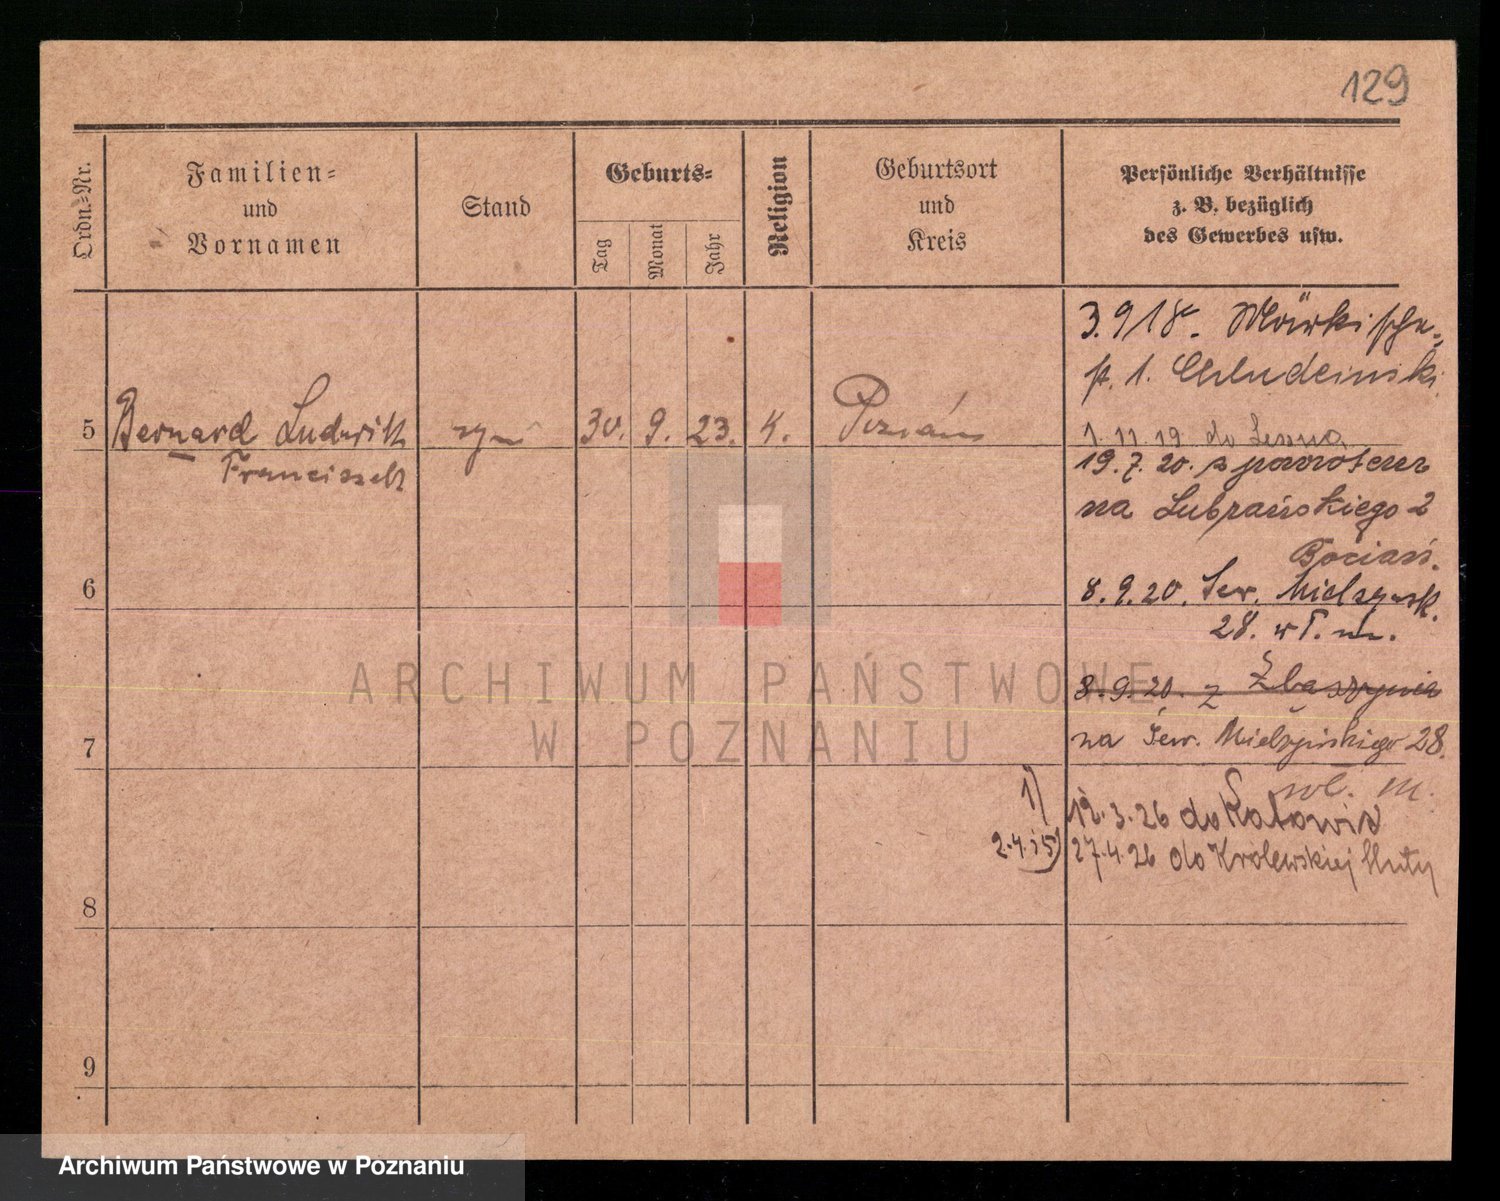 129
Ordn.-Nr.
Familien-
und
Vornamen
Stand
Geburts-
Tag
Monat
Jahr
Religion
Geburtsort
und
Kreis
Persönliche Verhältnisse
z. B. bezüglich
des Gewerbes usw.
3.9 18. Märkische-
st. 1.
5 Bernard Ludwik syn 30. 9. 23. K. Poznań 1.11.19 do Leszna
Franciszek
19.7.20. z powrotem
na Lubrańskiego 2
Bociań.
6
8.9.20. Sew. Mielżyńsk.
28. w T. m.
8.9.20. z Zbąszynia
7
na Sew. Mielżyńskiego 28.
wł. m.
1) 12.3.26 do Katowic
2.4.i5) 27.4.26 do Królewskiej Huty
8
9
ARCHIWUM PAŃSTWOWE
W POZNANIU
Archiwum Państwowe w Poznaniu